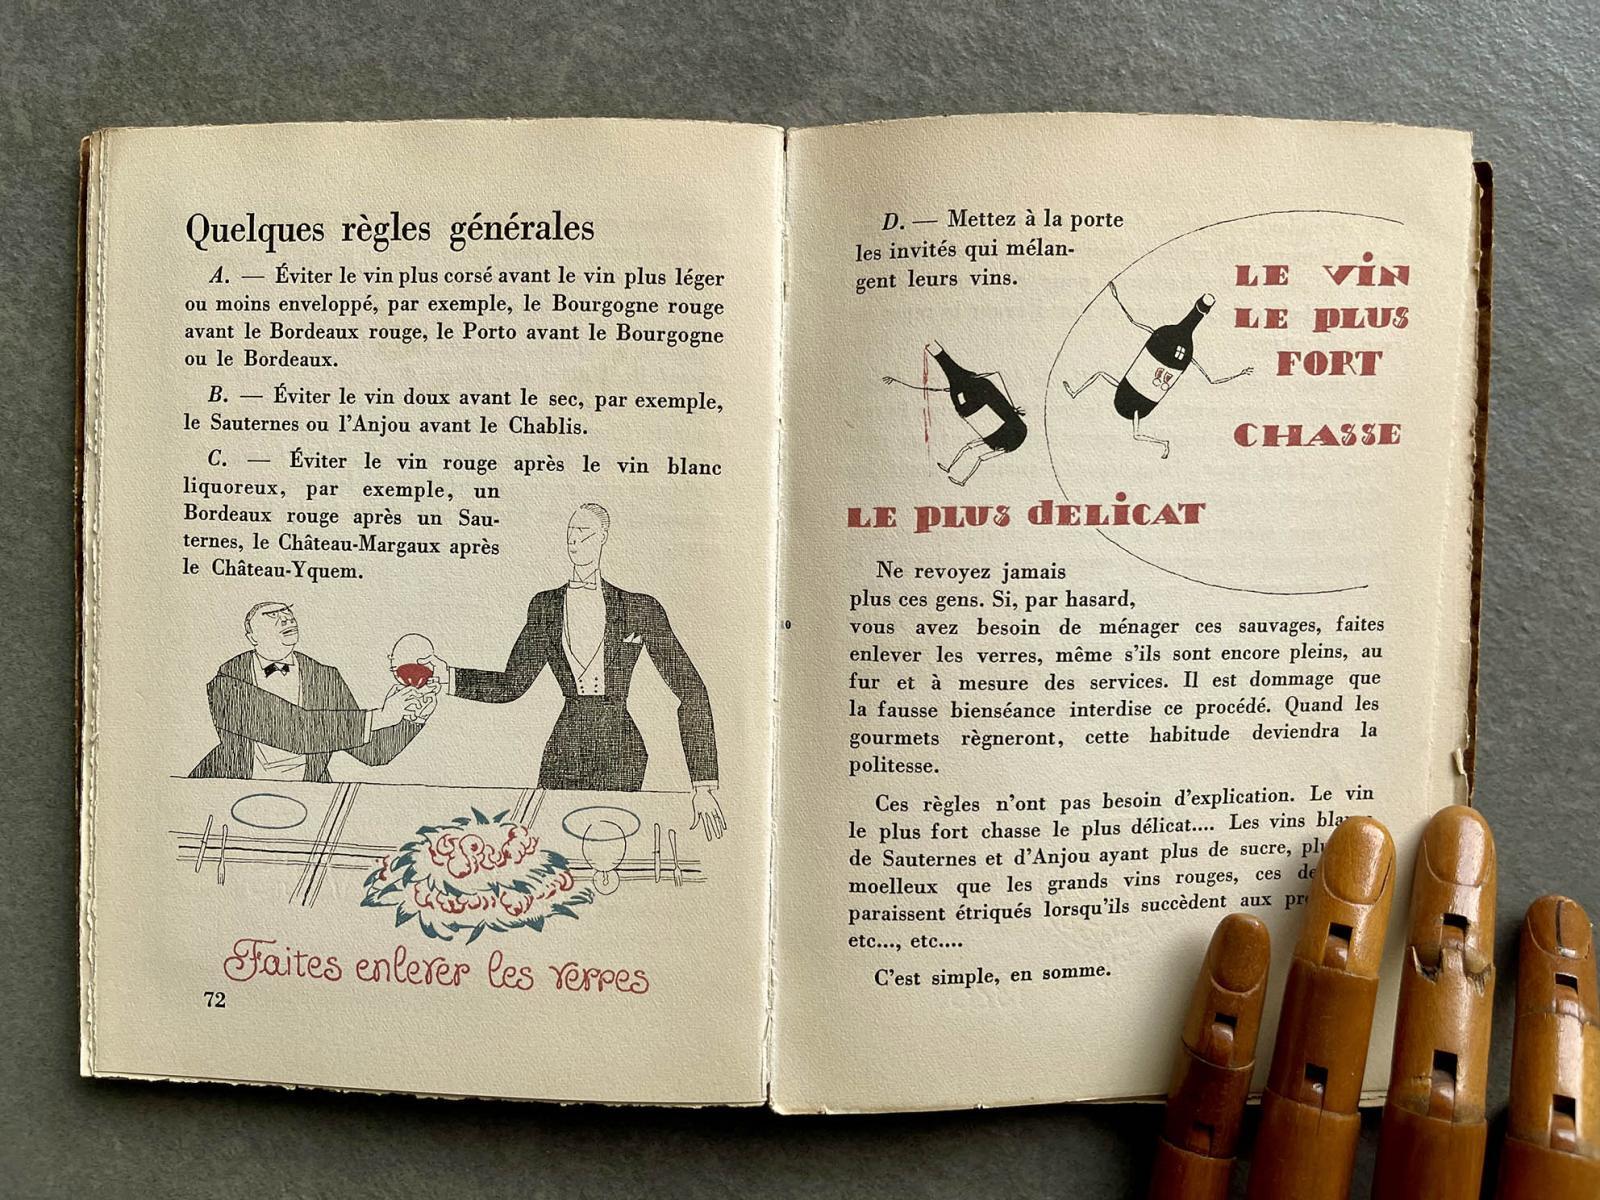 Quelques règles générales
A. — Éviter le vin plus corsé avant le vin plus léger
ou moins enveloppé, par exemple, le Bourgogne rouge
avant le Bordeaux rouge, le Porto avant le Bourgogne
ou le Bordeaux.
B. — Éviter le vin doux avant le sec, par exemple,
le Sauternes ou l'Anjou avant le Chablis.
C. — Éviter le vin rouge après le vin blanc
liquoreux, par exemple, un
Bordeaux rouge après un Sau-
ternes, le Château-Margaux après
le Château-Yquem.
Faites enlever les verres
72
D. — Mettez à la porte
les invités qui mélan-
gent leurs vins.
LE ViN
LE PLUS
FORT
CHASSE
LE PLUS dELiCAT
Ne revoyez jamais
plus ces gens. Si, par hasard,
vous avez besoin de ménager ces sauvages, faites
enlever les verres, même s'ils sont encore pleins, au
fur et à mesure des services. Il est dommage que
la fausse bienséance interdise ce procédé. Quand les
gourmets règneront, cette habitude deviendra la
politesse.
Ces règles n'ont pas besoin d'explication. Le vin
le plus fort chasse le plus délicat.... Les vins
de Sauternes et d'Anjou ayant plus de sucre,
moelleux que les grands vins rouges, ces
paraissent étriqués lorsqu'ils succèdent aux
etc..., etc....
C'est simple, en somme.